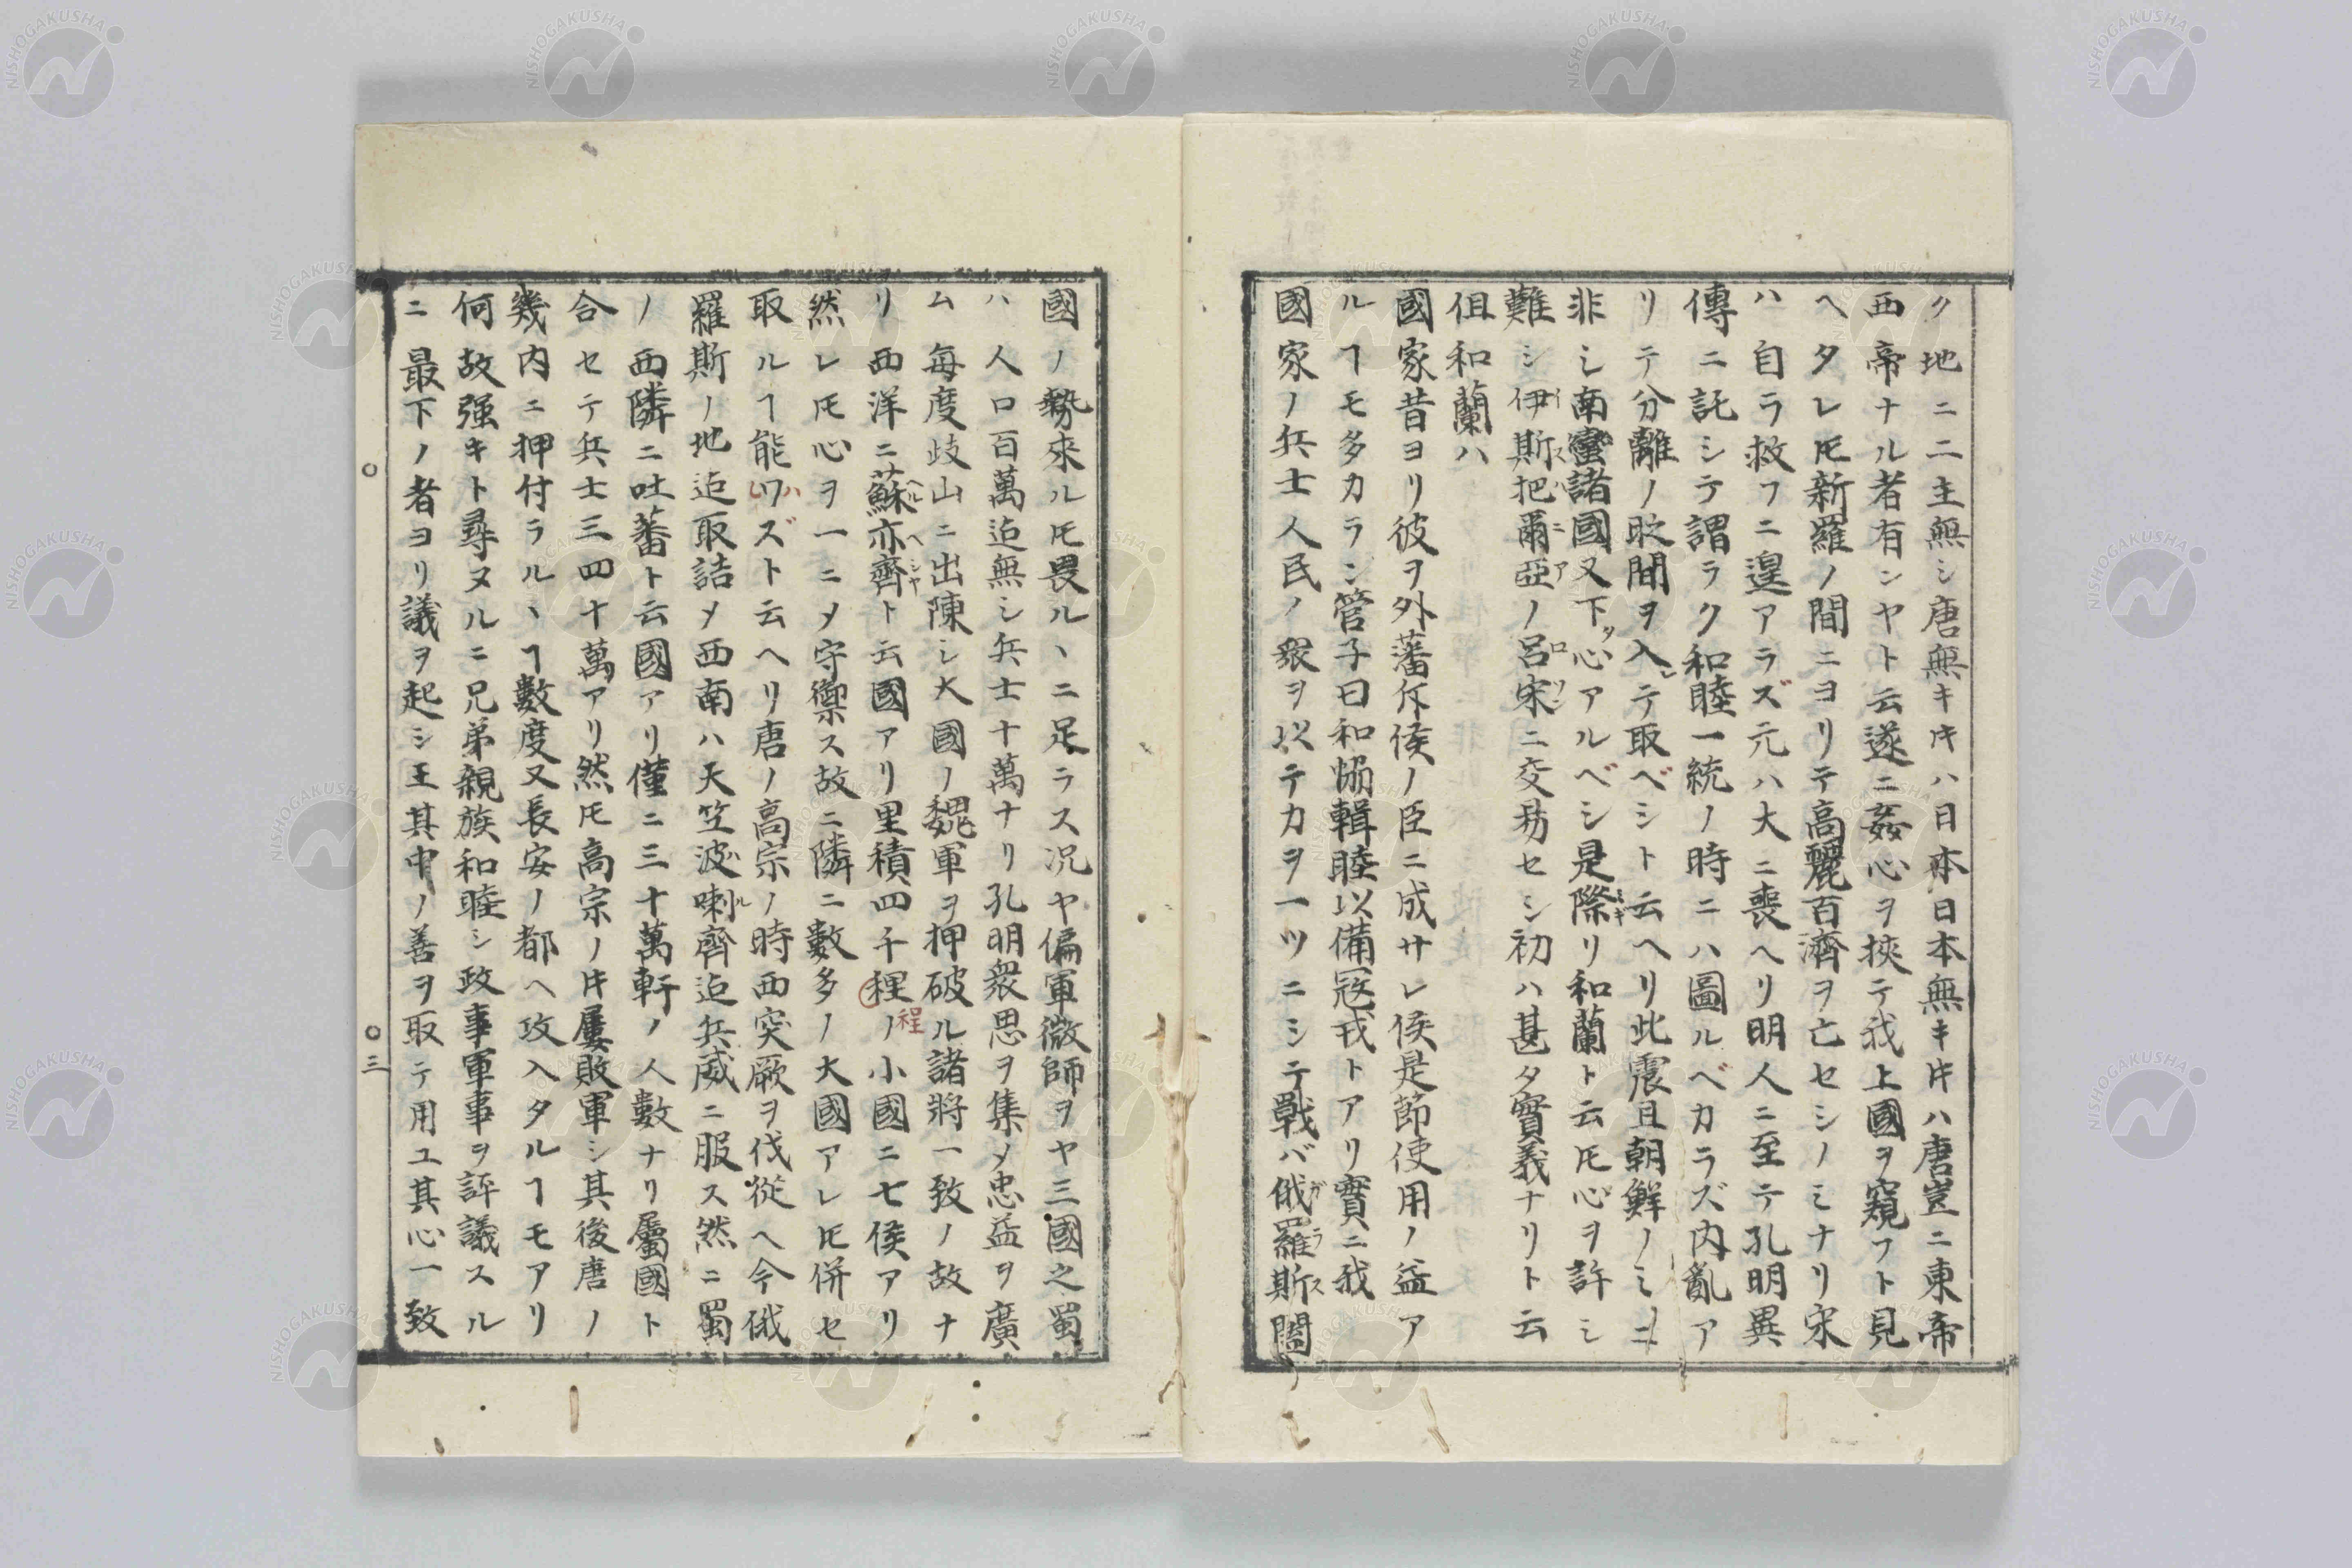 ク地ニ二主無シ唐無キ片ハ日本日本無キ片ハ唐豈ニ東帝
西帝ナル者有ンヤト云遂ニ姦心ヲ挾テ我上國ヲ窺フト見
ヘタレ𪜈新羅ノ間ニヨリテ高麗百濟ヲ亡セシノミナリ宋
ハ自ラ救フニ遑アラズ元ハ大ニ喪ヘリ明人ニ至テ孔明異
傳ニ託シテ謂ラク和睦一統ノ時ニハ圖ルベカラズ内亂ア
リテ分離ノ時間ヲ入レテ取ベシト云ヘリ此震且朝鮮ノミニ
非シ南蠻諸國又下タ心アルベシ是際リ和蘭ト云𪜈心ヲ許シ
難シ伊斯把爾亞ノ呂宋ニ交易セシ初ハ甚タ實義ナリト云
イスハニア
ロソン
ミギ
伹和蘭ハ
國家昔ヨリ彼ヲ外藩斥候ノ臣ニ成サレ候是節使用ノ益ア
ルヿモ多カラン管子曰和恊輯睦以備冦戎トアリ實ニ我
國家ノ兵士人民ノ衆ヲ以テカヲ一ツニシテ戰バ俄羅斯闔
ガラス
國ノ勢來ル𪜈畏ルヽニ足ラス况ヤ偏軍微師ヲヤ三國之蜀
ハ人口百萬迠無シ兵士十萬ナリ孔明衆思ヲ集メ忠益ヲ廣
ム毎度歧山ニ出陳シ大國ノ魏軍ヲ押破ル諸將一致ノ故ナ
リ西洋ニ蘇亦齊ト云國アリ里積四千稈ノ小國ニ七侯アリ
ヘルヘシヤ
程
然レ𪜈心ヲ一ニメ守禦ス故ニ隣ニ數多ノ大國アレ𪜈併セ
取ルヿ能ワズト云ヘリ唐ノ高宗ノ時西突厥ヲ伐從ヘ今俄
ハ
羅斯ノ地迠取詰メ西南ハ天笠波喇齊迠兵威ニ服ス然ニ蜀
ル
ノ西隣ニ吐蕃ト云國アリ僅ニ三十萬軒ノ人數ナリ屬國ト
合セテ兵士三四十萬アリ然𪜈高宗ノ片屢敗軍シ其後唐ノ
幾内ニ押付ラルヽヿ數度又長安ノ都ヘ攻入タルヿモアリ
何故强キト尋ヌルニ兄弟親族和睦シ政事軍事ヲ評議スル
ニ最下ノ者ヨリ議ヲ起シ王其中ノ善ヲ取テ用ユ其心一致
三
NISHOGAKUSHA